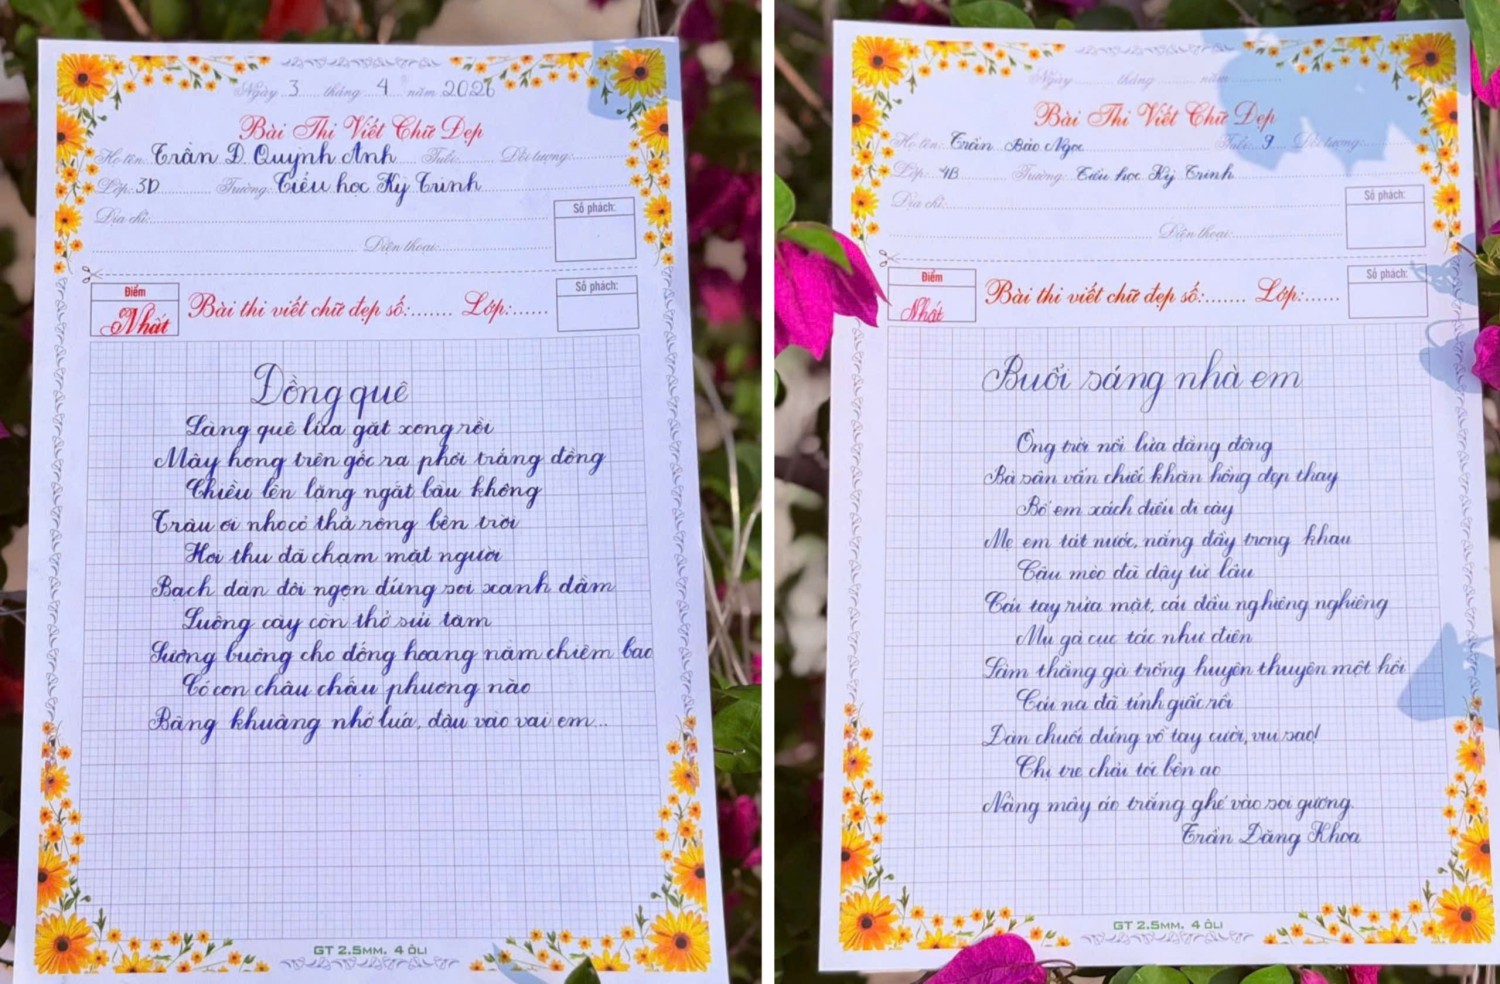 Ngày 3 tháng 4 năm 2026
Bài Thi Viết Chữ Đẹp
Họ tên: Trần D. Quỳnh Anh Tuổi: Đối tượng:
Lớp: 3D Trường: Tiểu học Kỳ Trinh
Địa chỉ:
Điện thoại:
Số phách:
Điểm
Nhất
Bài thi viết chữ đẹp số:....... Lớp:......
Số phách:
Đồng quê
Làng quê lúa gặt xong rồi
Mây hong trên gốc rạ phơi trắng đồng
Chiều lên lặng ngắt bầu không
Trâu ơi nhơi cỏ thả rông bên trời
Hơi thu đã chạm mặt người
Bạch đàn đôi ngọn đứng soi xanh đầm
Luống cày còn thở sủi tăm
Sương buông cho đống hoang nằm chiêm bao
Có con châu chấu phương nào
Bâng khuâng nhớ lúa, đậu vào vai em...
GT 2.5MM. 4 ÔLI
Ngày tháng năm
Bài Thi Viết Chữ Đẹp
Họ tên: Trần Bảo Ngọc Tuổi: 9 Đối tượng:
Lớp: 4B Trường: Tiểu học Kỳ Trinh
Địa chỉ:
Điện thoại:
Số phách:
Điểm
Nhất
Bài thi viết chữ đẹp số:....... Lớp:......
Số phách:
Buổi sáng nhà em
Ông trời nổi lửa đằng đông
Bà sân vấn chiếc khăn hồng đẹp thay
Bố em xách điếu đi cày
Mẹ em tát nước, nắng đầy trong khau
Cậu mèo đã dậy từ lâu
Cái tay rửa mặt, cái đầu nghiêng nghiêng
Mụ gà cục tác như điên
Làm thằng gà trống huyên thuyên một hồi
Cái na đã tỉnh giấc rồi
Đàn chuối đứng vỗ tay cười, vui sao!
Chị tre chải tóc bên ao
Nàng mây áo trắng ghé vào soi gương.
Trần Đăng Khoa
GT 2.5MM. 4 ÔLI